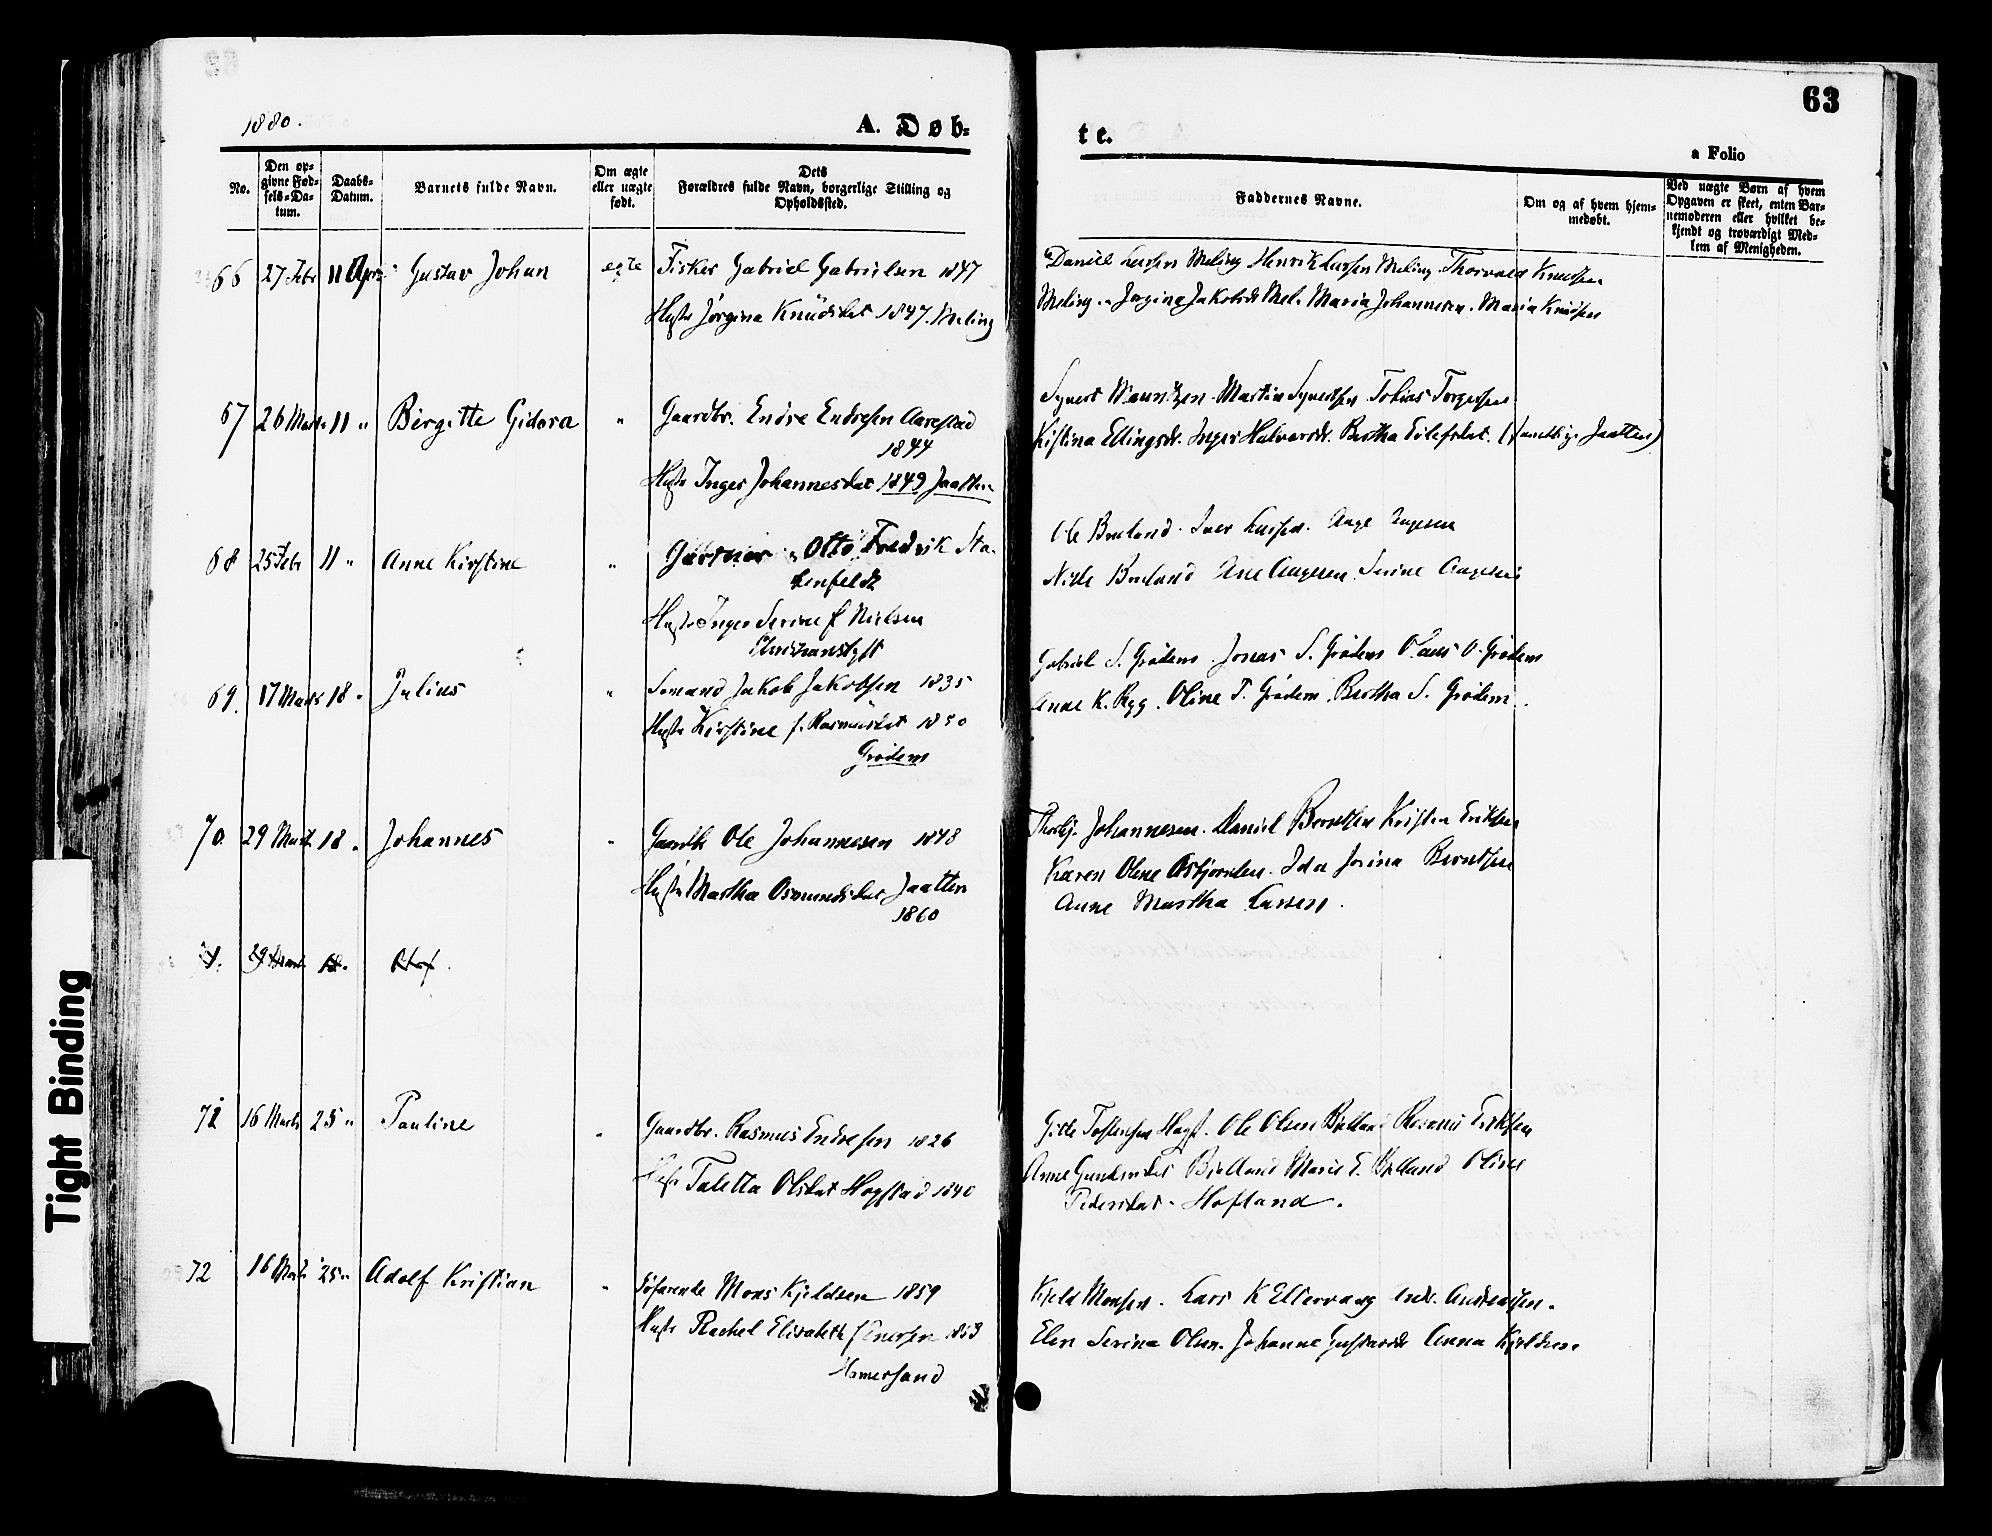 63
1880.
A. Døb=
te.
a Folio
No.
Den op=
givne Fød=
sels=Da=
tum.
Daabs=
Datum.
Barnets fulde Navn.
Om ægte
eller uægte
født.
Dets
Forældres fulde Navn, borgerlige Stilling og
Opholdssted.
Faddernes Navne.
Om og af hvem hjem=
medøbt.
Ved uægte Børn af hvem
Opgaven er skeet, enten Bar=
nemoderen eller hvilket be=
kjendt og troværdigt Med=
lem af Menigheden.
66 27 Febr 11 April Gustav Johan egte Fisker Gabriel Gabrielsen 1847
Hustr Jørgina Knudsdat 1847. Meling
Daniel Larsen Meling Henrik Larsen Meling. Thorvald Knudsen
Meling. Jorgine Jakobsdt Mel. Maria Johannesen. Maria Knudsen
67 26 Marts 11 " Birgitte Gidora " Gaardbr. Endre Endresen Aarestad
1844
Hustr Inger Johannesdat 1849 Jaatten
Syvert Martin Syvertsen Tobias Torgersen
Kistina Ellingsdt. Inger Halvorsdt. Bertha Eilefsdat. (samtlig. Jaatten)
68 25 Febr 11 " Anne Kirstine " Gartner Otto Fredrik Sta-
kenfeldt
Hustr Inger Serine f Nielsen
Ole Bruland. Iver Larsen. Aage
Nille Bruland Ane Aagesen. Serine Aagesen
69. 17 Marts 18 " Julius " Sømand Jakob Jakobsen 1835
Hustr Kirstine f. Rasmusdat 1850
Grødem
Gabriel S. Grødem. Jonas S. Grødem Olaus O. Grødem
Anne K. Rygg. Oline T. Grødem. Bertha S. Grødem.
70. 29 Marts 18 " Johannes " Gaardbr Ole Johannesen 1848
Hustr Martha Osmundsdat Jaatten
1860
Thorbj. Johannesen. Daniel Berntsen Kristen Eriksen
Karen Olene Asbjørnsen. Ida Jorina Berntsen
Anne Martha Larsen.
71. 29 Marts 18. Olaf.
71 16 Marts 25 " Pauline " Gaardbr. Rasmus Endresen 1826
Hustr Taletta Olsdat Hogstad 1840
Gitle Tostensen Hogst. Ole Olsen Bjelland Rasmus Eriksen
Anne Gundersdat Bjelland Marie E. Bjelland Oline
Pedersdat. Hofland.
72 16 Marts 25 " Adolf Kristian " Søfarende Mons Kjeldsen 1859
Hustr Rachel Elisabeth f Enersen
Hamersand
Kjeld Monsen. Lars K Ellervaag Andr. Andreassen.
Elen Serina Olsen. Johanne Gustavsdt Anna Kjeldsen.
Tight Binding